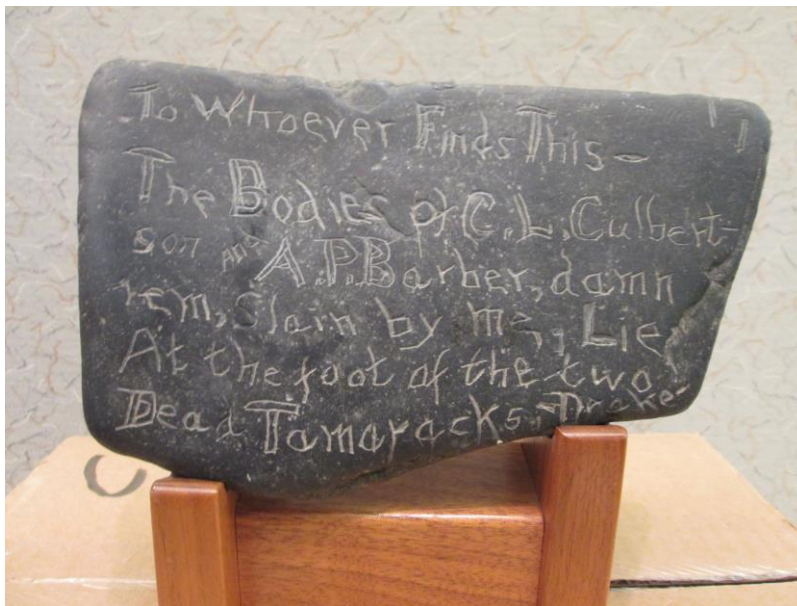 To Whoever Finds This-
The Bodies of C. L. Culbert-
son and A. P. Barber, damn
rem, Slain by me, Lie
At the foot of the two
Dead Tamaracks, Drake-